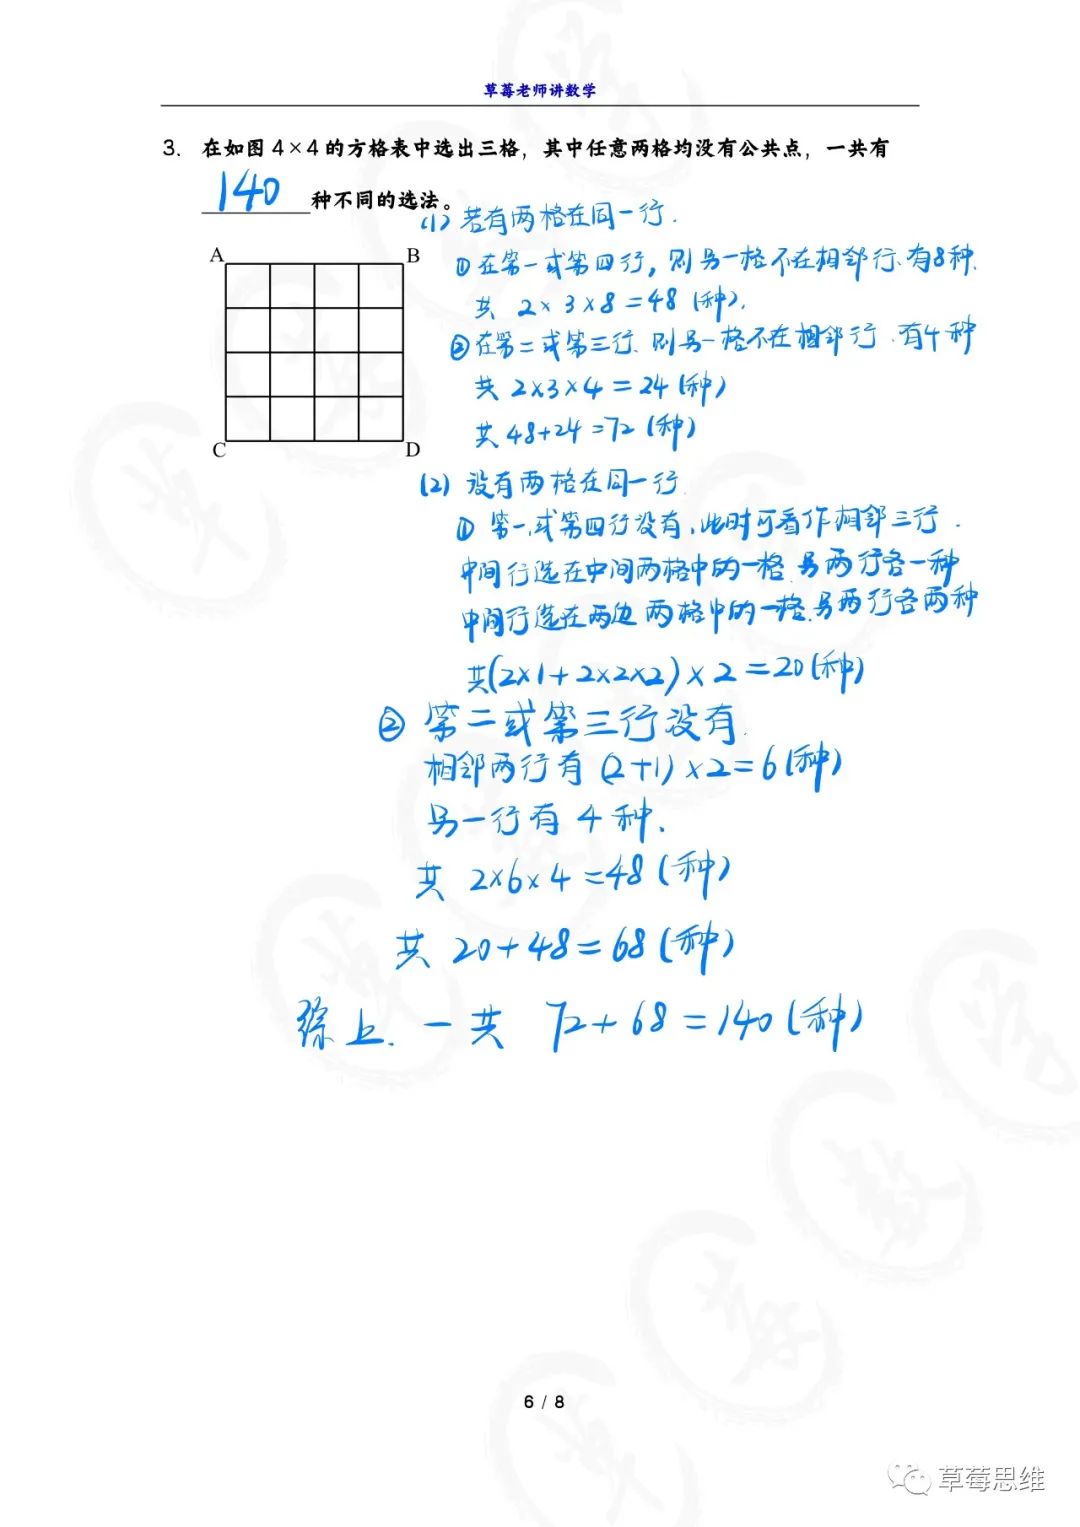 草莓老师讲数学
3. 在如图 4×4 的方格表中选出三格，其中任意两格均没有公共点，一共有
140 种不同的选法。
(1) 若有两格在同一行.
① 在第一或第四行, 则另一格不在相邻行、有8种.
共 2×3×8=48 (种).
② 在第二或第三行. 则另一格不在相邻行. 有4种
共 2×3×4=24 (种)
共 48+24=72 (种)
A B
C D
(2) 没有两格在同一行.
① 第一或第四行没有, 此时可看作相邻三行.
中间行选在中间两格中的一格. 另两行各一种
中间行选在两边两格中的一格. 另两行各两种
共(2×1+2×2×2)×2=20(种)
② 第二或第三行没有.
相邻两行有 (2+1)×2=6(种)
另一行有 4 种.
共 2×6×4=48 (种)
共 20+48=68 (种)
综上. 一共 72+68=140 (种)
6 / 8
草莓思维